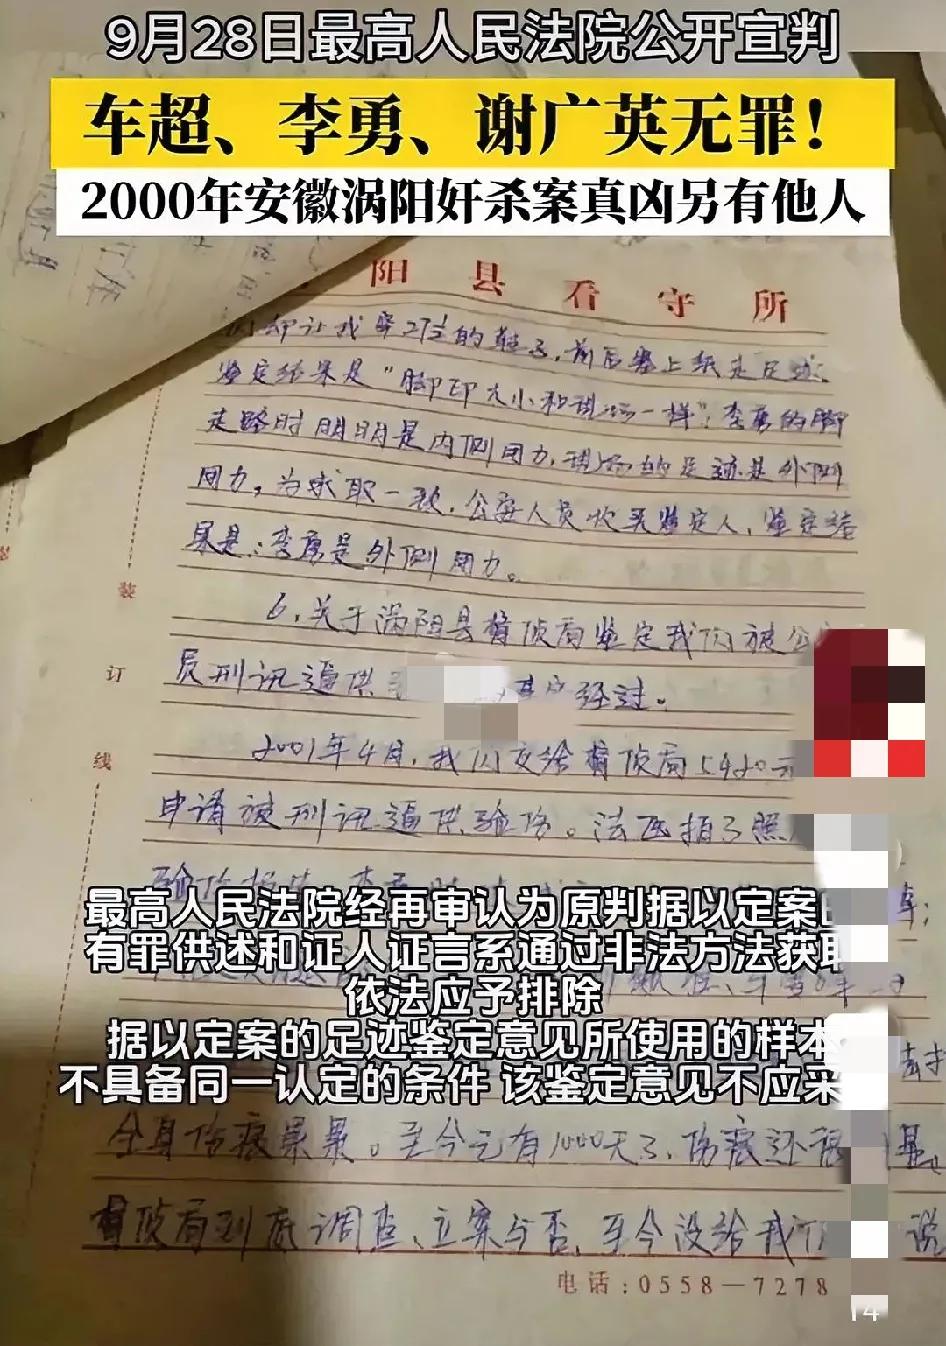 9月28日最高人民法院公开宣判
车超、李勇、谢广英无罪！
2000年安徽涡阳奸杀案真凶另有他人
阳县看守所
却让我穿27的鞋子，前后塞上纸走足迹、
鉴定结果是“脚印大小和现场一样”；李勇的脚
走路时明明是内侧用力，现场的足迹是外侧
用力，为求取一致，公安人员收买鉴定人，鉴定结
果是：李勇是外侧用力。
6、关于涡阳县督侦局鉴定我们被公
员刑讯逼供 经过。
2001年4月，我们交给督侦局5420元
申请被刑讯逼供验伤。法医拍了照
最高人民法院经再审认为原判据以定案
有罪供述和证人证言系通过非法方法获取
依法应予排除
据以定案的足迹鉴定意见所使用的样本
不具备同一认定的条件 该鉴定意见不应采
全身伤痕累累。至今已有1000天了，伤痕还很
督侦局到底调查、立案与否，至今没给我们 说
装
订
线
电话：0558—7278
14